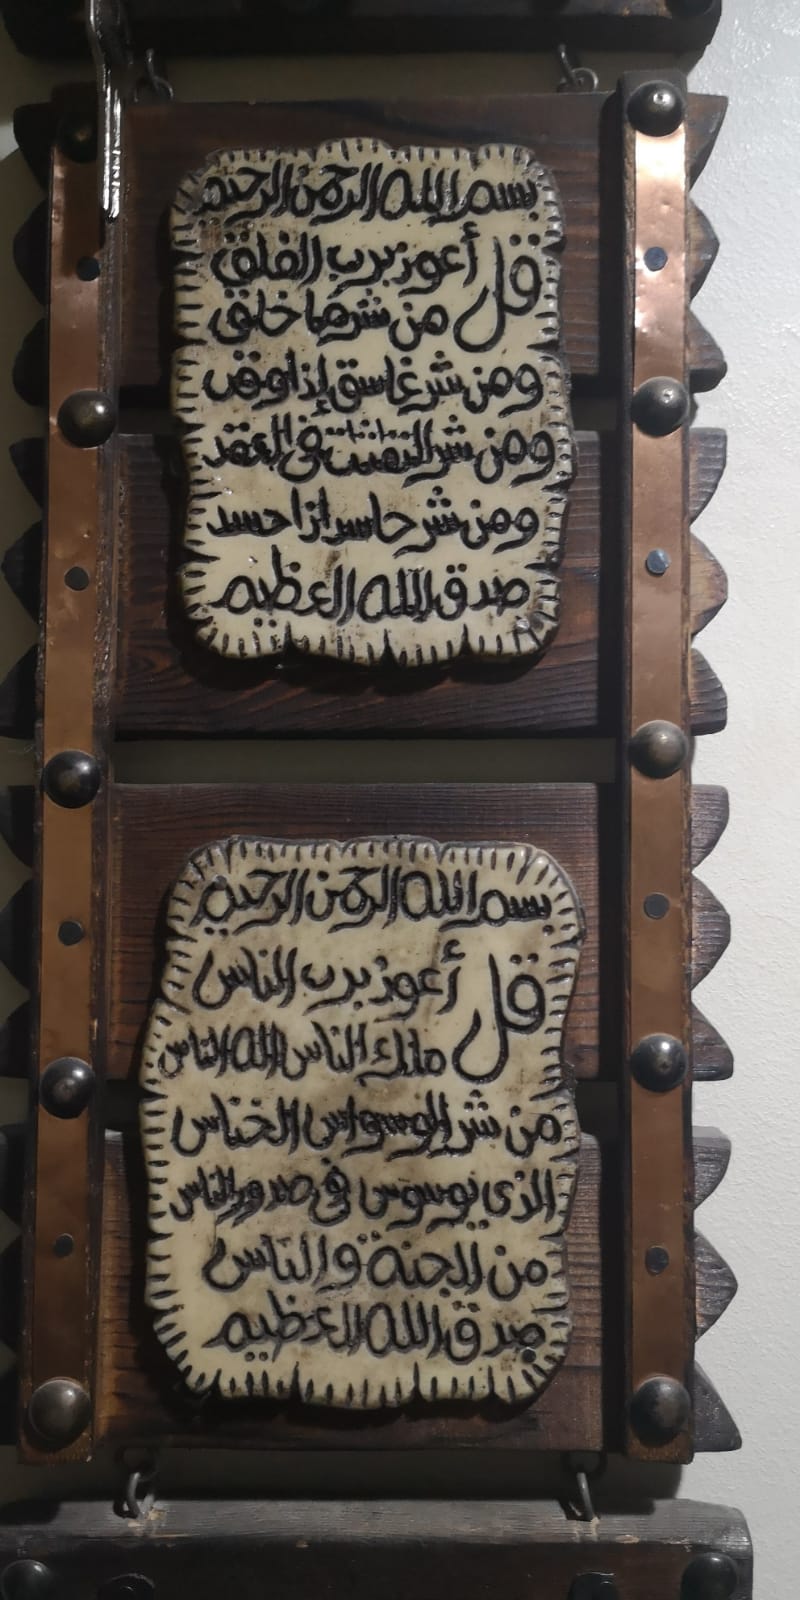 بسم الله الرحمن الرحيم
قل أعوذ برب الفلق
من شر ما خلق
ومن شر غاسق إذا وقب
ومن شر النفثت في العقد
ومن شر حاسد إذا حسد
صدق الله العظيم
بسم الله الرحمن الرحيم
قل أعوذ برب الناس
ملك الناس اله الناس
من شر الوسواس الخناس
الذي يوسوس في صدور الناس
من الجنة والناس
صدق الله العظيم